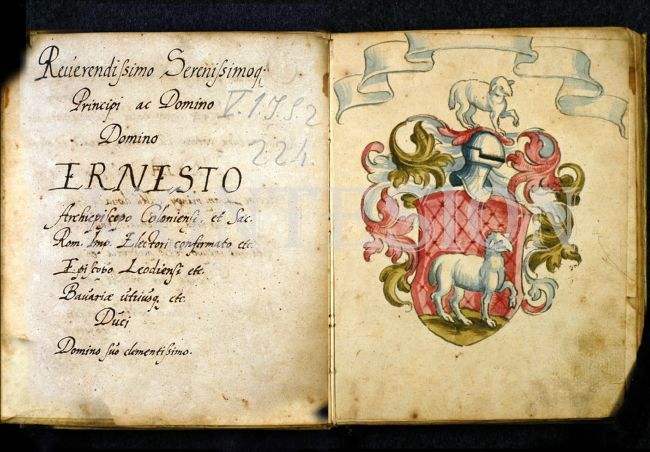 Reuerendißimo Serenißimoq;
Principi ac Domino
V 1152
Domino
224.
ERNESTO
Archiepiscopo Coloniensi, et Sac.
Rom. Imp. Electori confirmato etc.
Episcopo Leodiensi etc.
Bavariæ utriusq. etc.
Duci
Domino suo clementißimo.